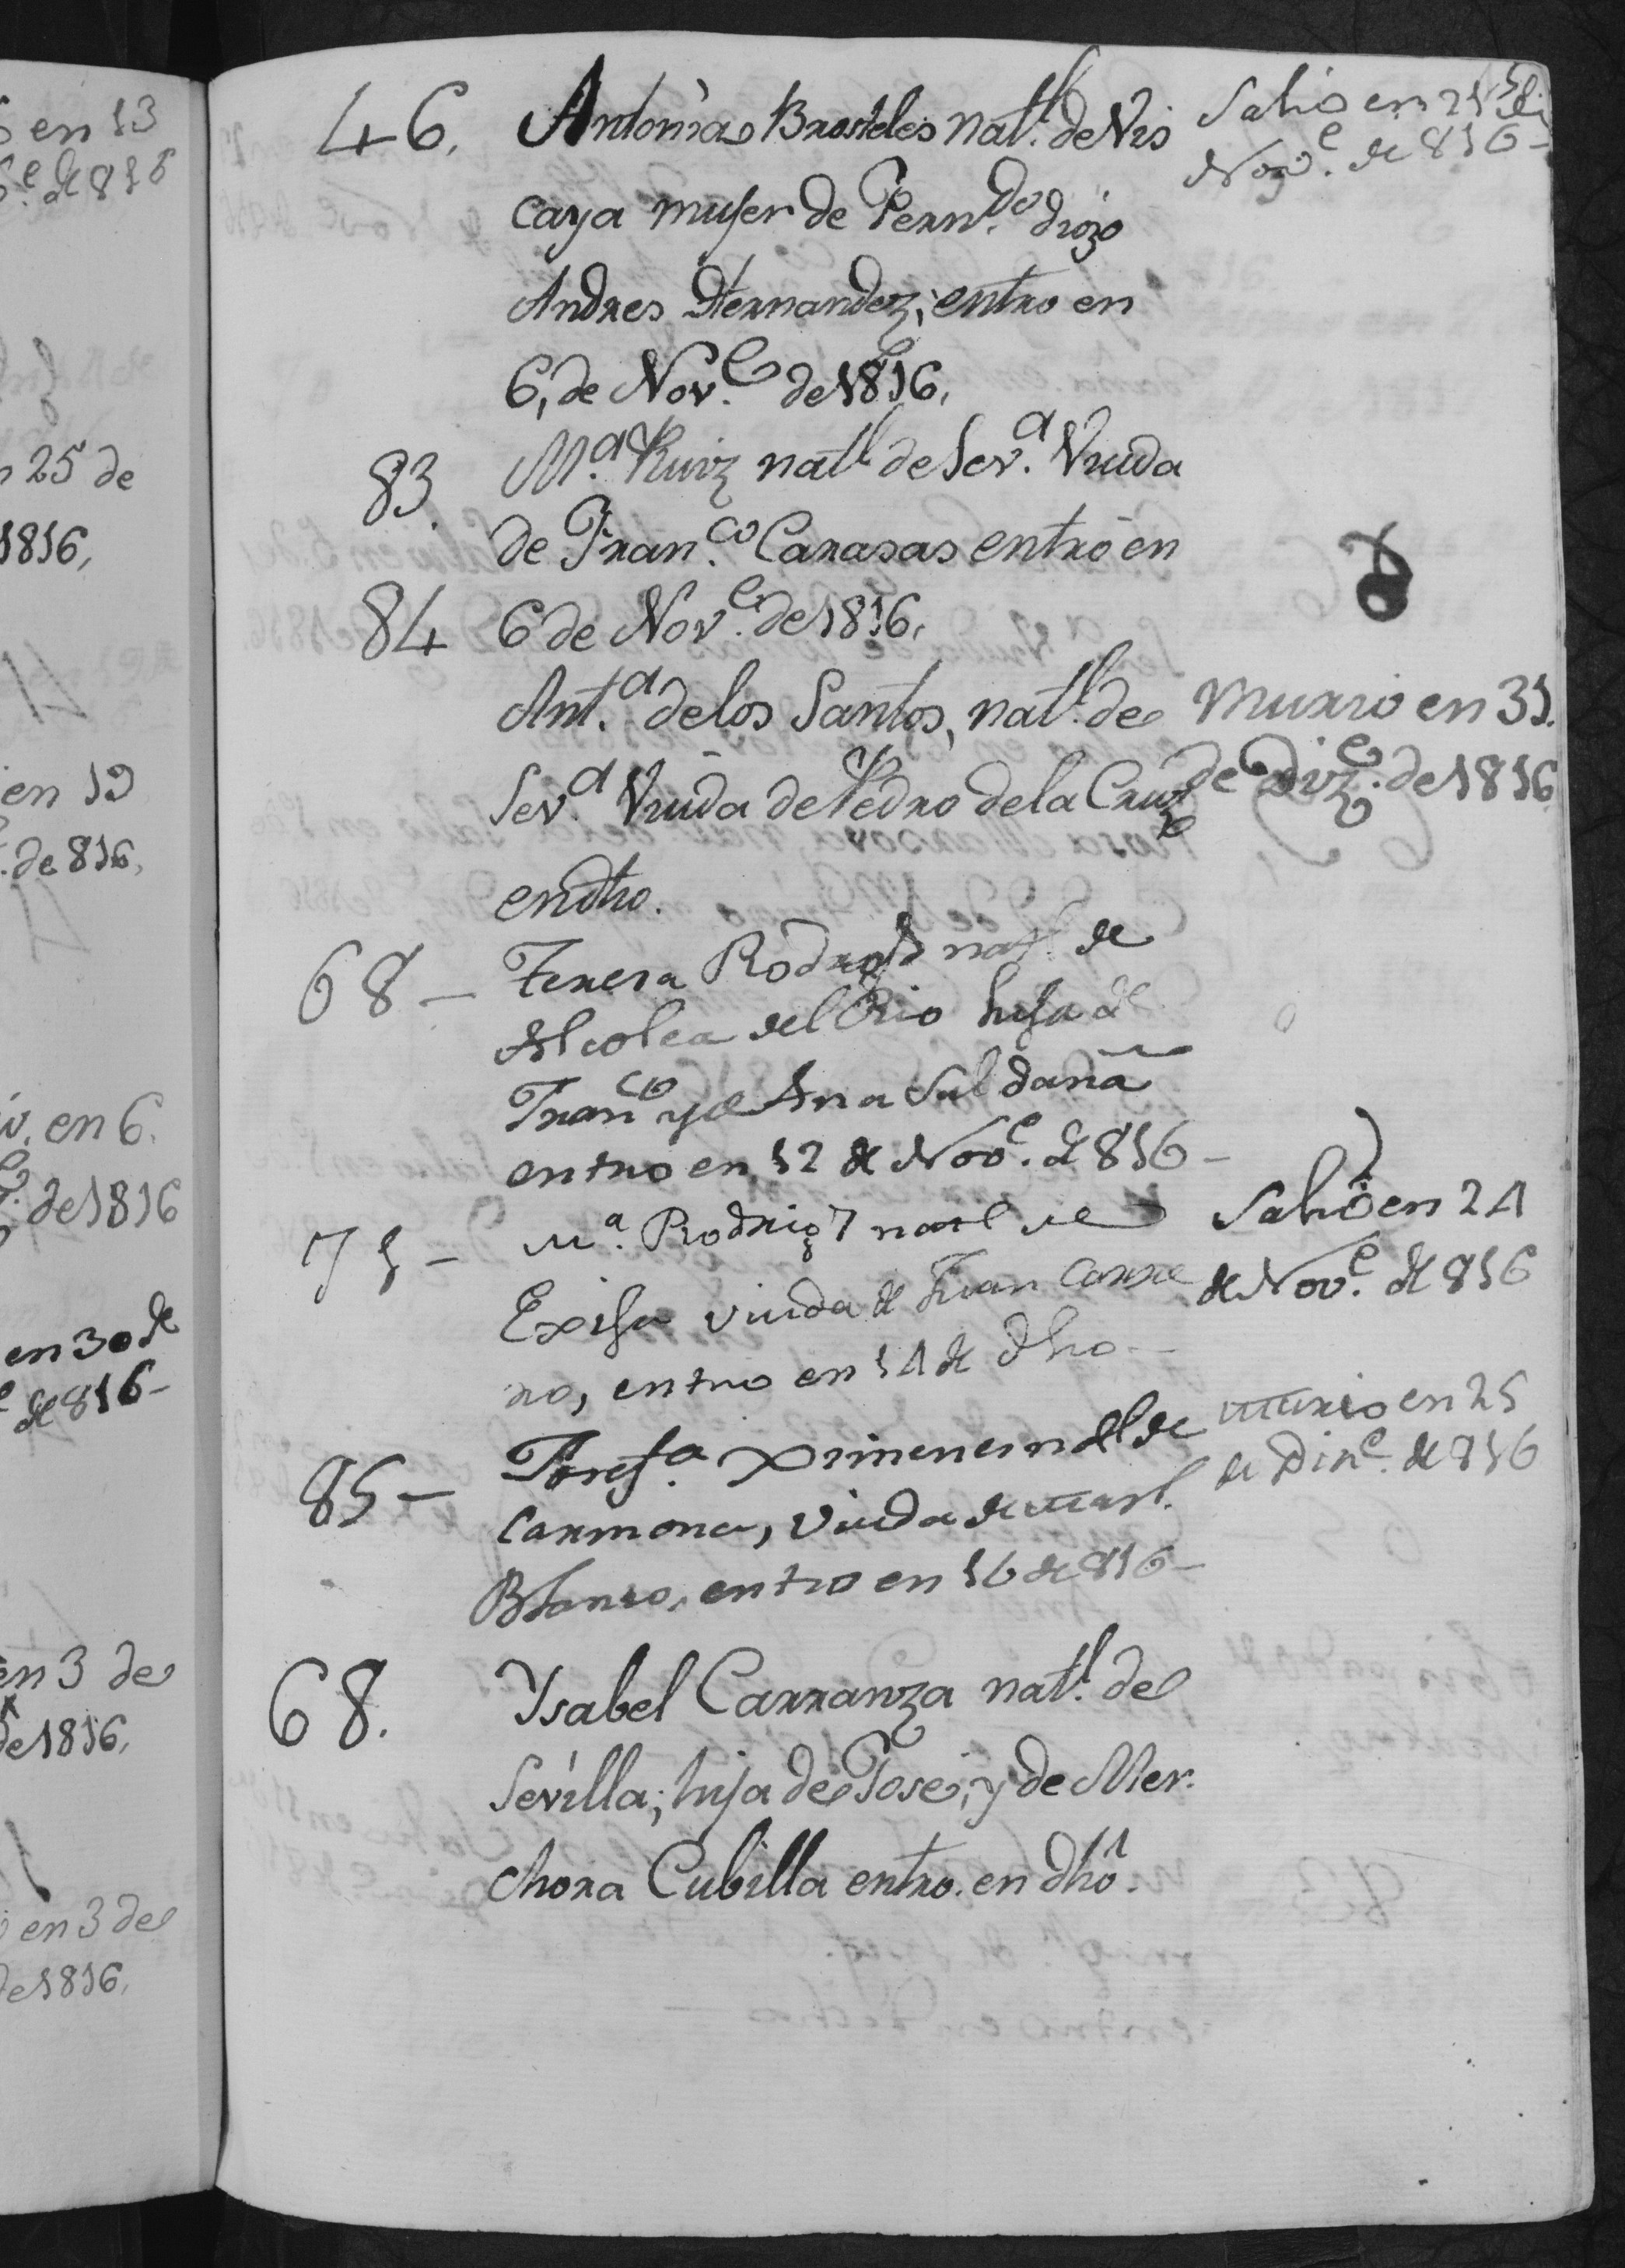 en 13
de 816
25 de
1816,
en 19
de 816,
en 6.
de 1816
en 30 de
de 816-
en 3 de
de 1816,
en 3 de
de 1816,
46. Antonia Brosteles natl. de Vis
caya muger de Fern.do digo
Andres Hernandez; entro en
6, de Nov.e de 1816,
Salio en 21
de Nov.e de 816-
83. M.a Ruiz natl de Sev.a Viuda
de Fran.co Carasas entró en
84 6 de Nov.e de 1816,
Ant.a de los Santos, natl. de
Sev.a Viuda de Pedro de la Cruz
en dho.
Murio en 31.
de Diz.e de 1816
68- Teresa Rodrig.z natl. de
Alcolea del Rio hija de
Fran.co y de Ana Saldaña
entro en 12 de Nov.e de 816-
75- M.a Rodrig.z natl de
Exija viuda de Juan Carre
ro, entro en 14 de dho-
Salió en 24
de Nov.e de 816
85- Josef.a Ximenes natl de
Carmona, viuda de
Blanco, entro en 16 de 816-
murio en 25
de Dic.e de 816
68. Ysabel Carranza natl. de
Sevilla; hija de Jose; y de Mer.
chora Cubilla entro. en dho.